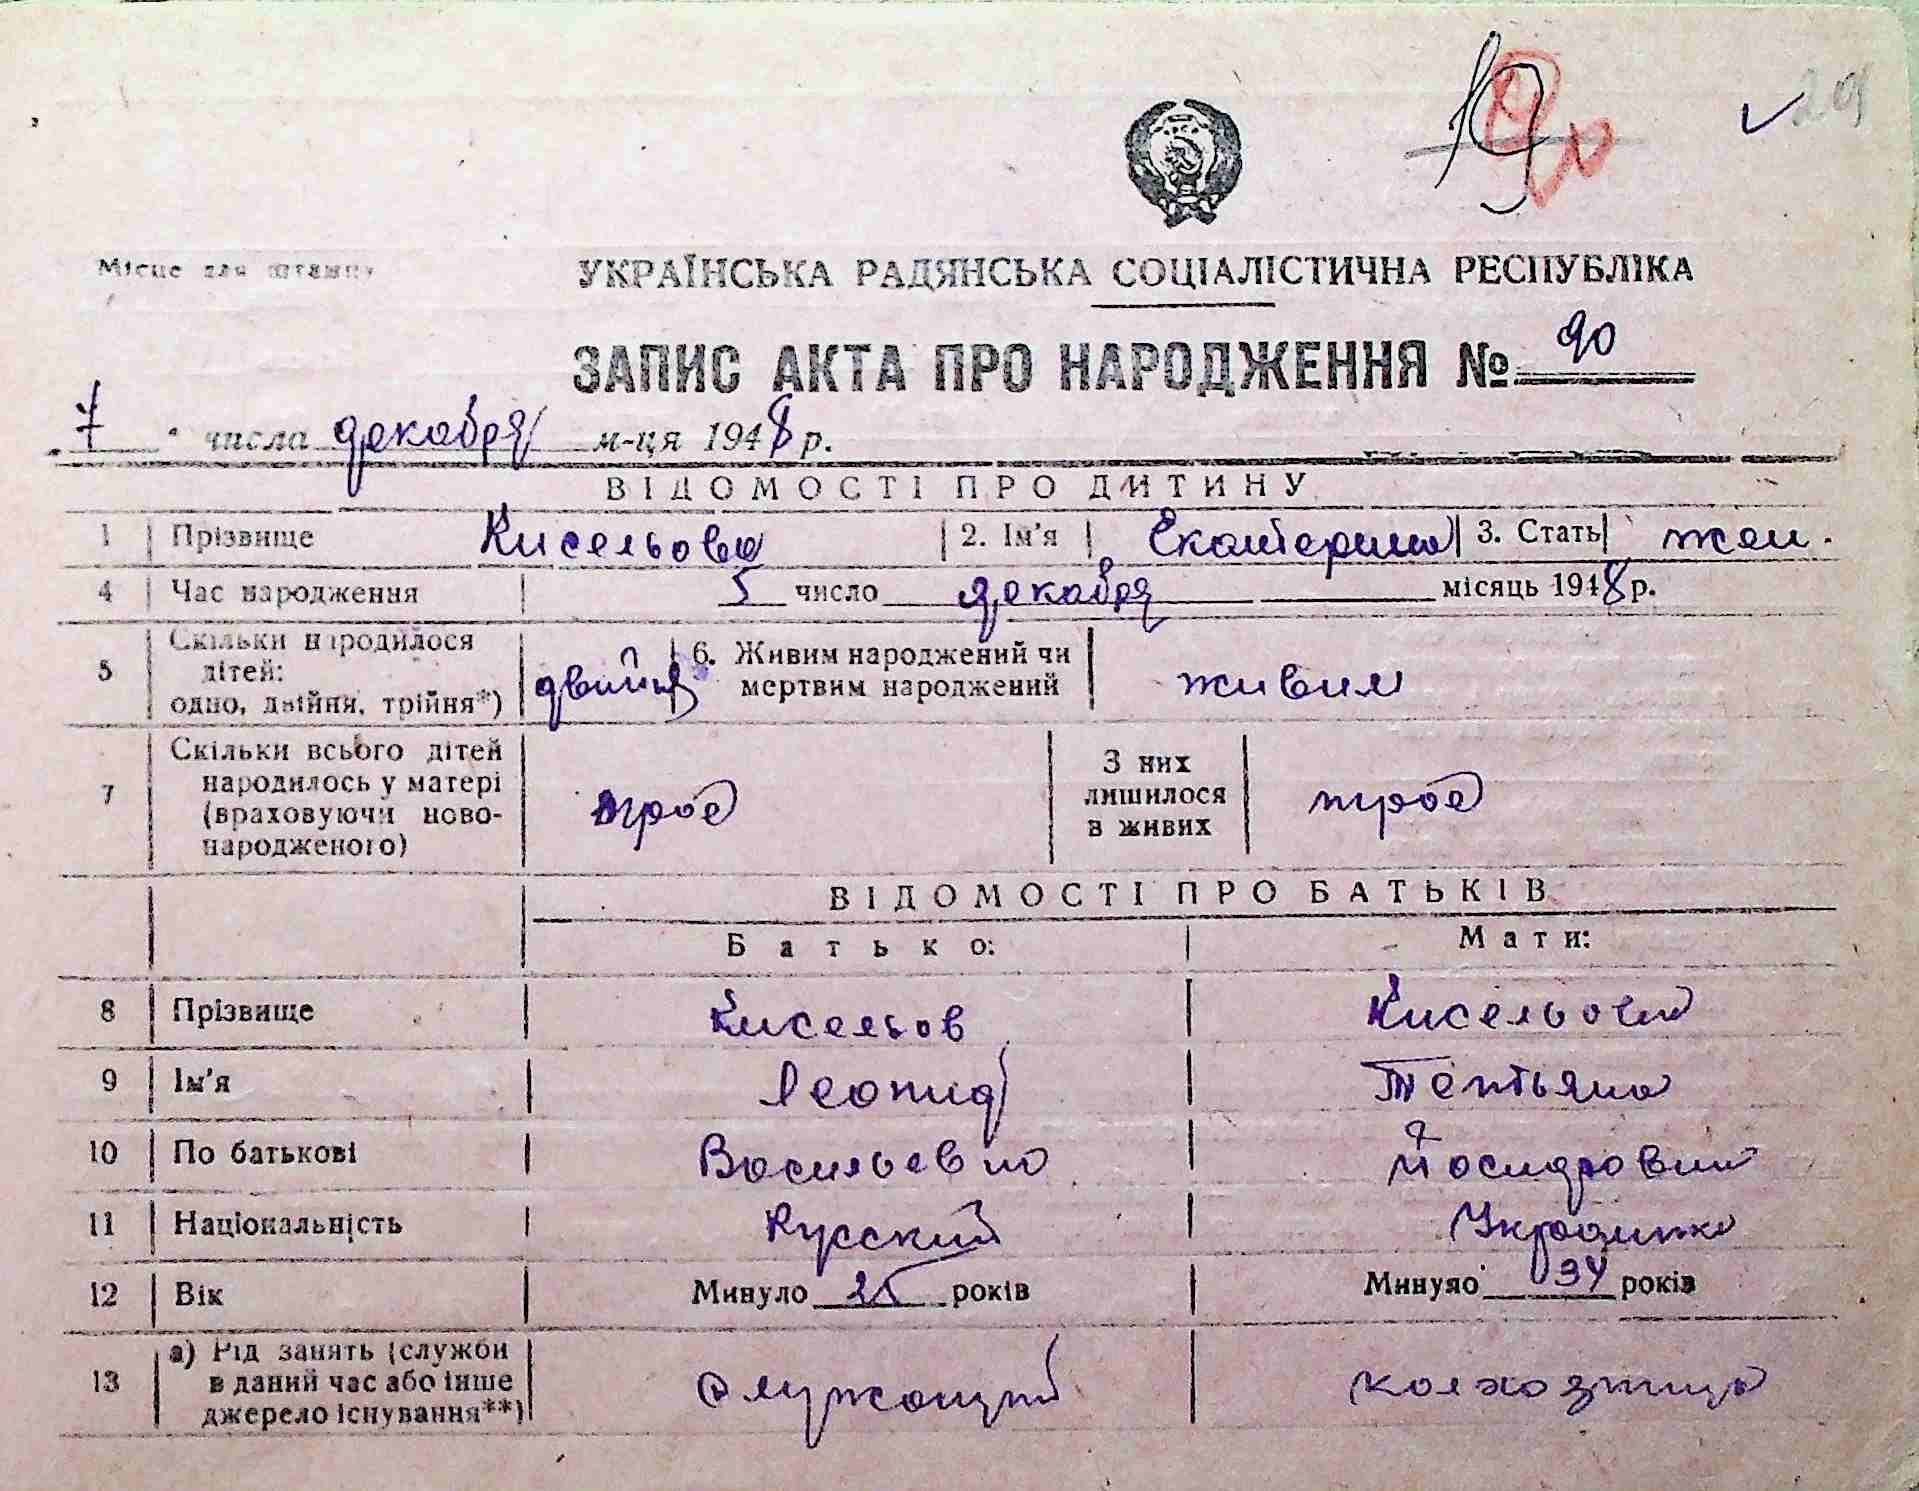 19
Місце для штампу
УКРАЇНСЬКА РАДЯНСЬКА СОЦІАЛІСТИЧНА РЕСПУБЛІКА
ЗАПИС АКТА ПРО НАРОДЖЕННЯ № 90
7 числа декабря м-ця 1948 р.
ВІДОМОСТІ ПРО ДИТИНУ
1 Прізвище Кисельова 2. Ім'я Екатерина 3. Стать жен.
4 Час народження 5 число декабря місяць 1948 р.
5 Скільки народилося дітей: одно, двійня, трійня*) двийня 6. Живим народжений чи мертвим народжений живим
7 Скільки всього дітей народилось у матері (враховуючи новонародженого) трое З них лишилося в живих трое
ВІДОМОСТІ ПРО БАТЬКІВ
Батько: Мати:
8 Прізвище Кисельов Кисельова
9 Ім'я Леонид Тетьяна
10 По батькові Васильевич Йосидровна
11 Національність Русский Украинка
12 Вік Минуло 25 років Минуло 34 років
13 а) Рід занять (служби в даний час або інше джерело існування**) Служащий колхозница